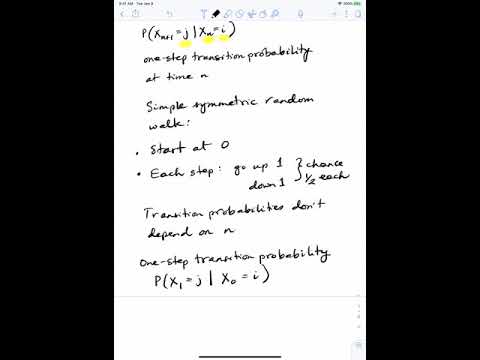 9:41 AM Tue Jan 9
P(X_{n+1} = j | X_n = i)
one-step transition probability
at time n
Simple symmetric random
walk:
• Start at 0
• Each step: go up 1 } chance
down 1 } 1/2 each
Transition probabilities don't
depend on n
One-step transition probability
P(X_1 = j | X_0 = i)